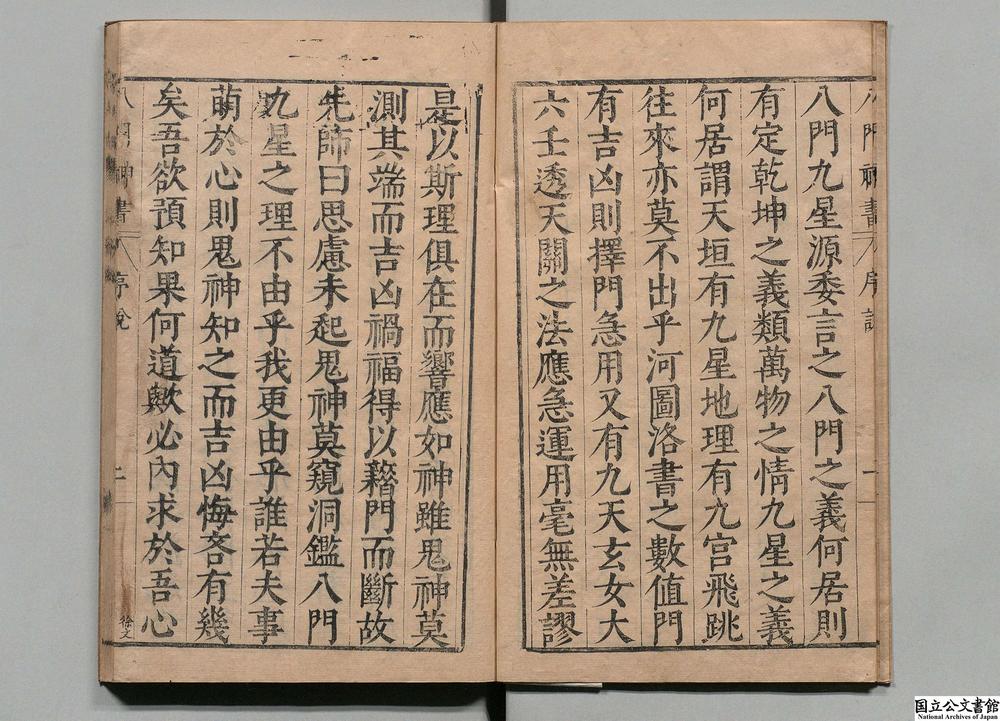 八門神書
序說
一
八門九星源委言之八門之義何居則
有定乾坤之義類萬物之情九星之義
何居謂天垣有九星地理有九宮飛跳
往來亦莫不出乎河圖洛書之數值門
有吉凶則擇門急用又有九天玄女大
六壬透天關之法應急運用毫無差謬
是以斯理俱在而響應如神雖鬼神莫
測其端而吉凶禍福得以籍門而斷故
先師曰思慮未起鬼神莫窺洞鑑八門
九星之理不由乎我更由乎誰若夫事
萌於心則鬼神知之而吉凶悔吝有幾
矣吾欲預知果何道歟必內求於吾心
八門神書
序說
二
徐文
国立公文書館
National Archives of Japan